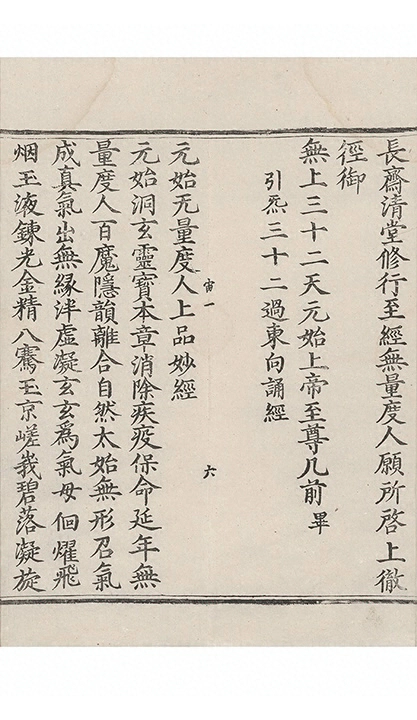 長齋清堂修行至經無量度人願所啓上徹
徑御
無上三十二天元始上帝至尊几前畢
引炁三十二過東向誦經
宙一 六
元始无量度人上品妙經
元始洞玄靈寶本章消除疾疫保命延年無
量度人百魔隱韻離合自然太始無形召氣
成真氣出無緣泮虛凝玄玄爲氣母徊燿飛
烟玉液鍊光金精八騫玉京嵯峩碧落凝旋